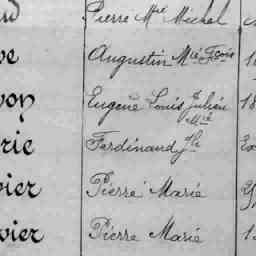 Pierre Mie Michel
ve Augustin Mie Fçois
von Eugène Louis Julien
Mie
rie Ferdinand
vier Pierre Marie
vier Pierre Marie